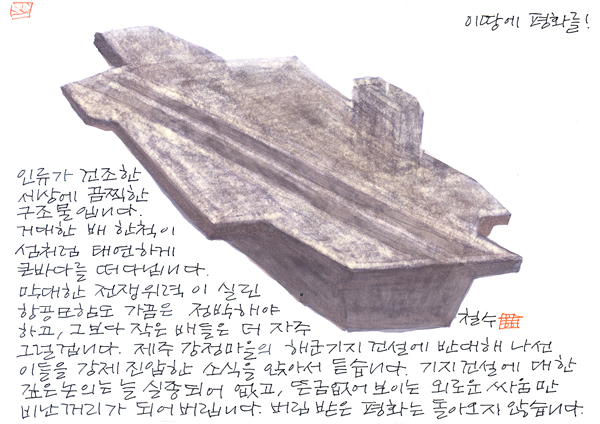 이땅에 평화를!
인류가 건조한
세상에 끔찍한
구조물입니다.
거대한 배 한척이
섬처럼 태연하게
큰바다를 떠다닙니다.
막대한 전쟁위력이 실린
항공모함도 가끔은 정박해야
하고, 그보다 작은 배들은 더 자주
그럴겁니다. 제주 강정마을의 해군기지 건설에 반대해 나선
이들을 강제 진압한 소식을 앉아서 듣습니다. 기지건설에 대한
깊은 논의는 늘 실종되어 없고, 뜬금없어 보이는 외로운 싸움만
비난꺼리가 되어버립니다. 버림 받은 평화는 돌아오지 않습니다.
철수